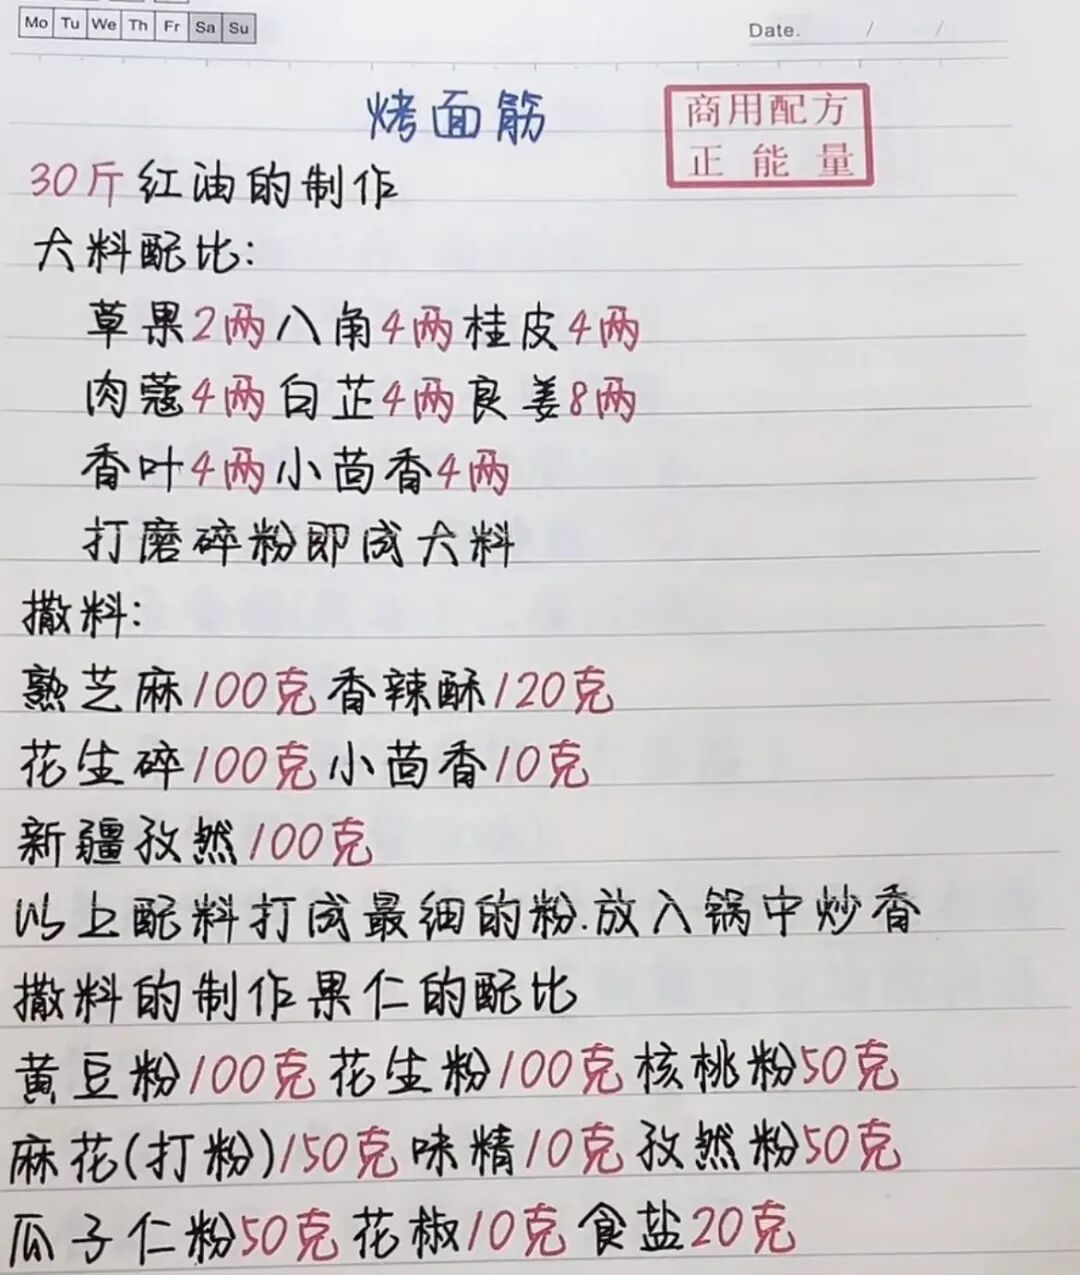 Mo Tu We Th Fr Sa Su
Date. / /
烤面筋
商用配方
正能量
30斤红油的制作
大料配比:
草果2两八角4两桂皮4两
肉蔻4两白芷4两良姜8两
香叶4两小茴香4两
打磨碎粉即成大料
撒料:
熟芝麻100克香辣酥120克
花生碎100克小茴香10克
新疆孜然100克
以上配料打成最细的粉.放入锅中炒香
撒料的制作果仁的配比
黄豆粉100克花生粉100克核桃粉50克
麻花(打粉)150克味精10克孜然粉50克
瓜子仁粉50克花椒10克食盐20克